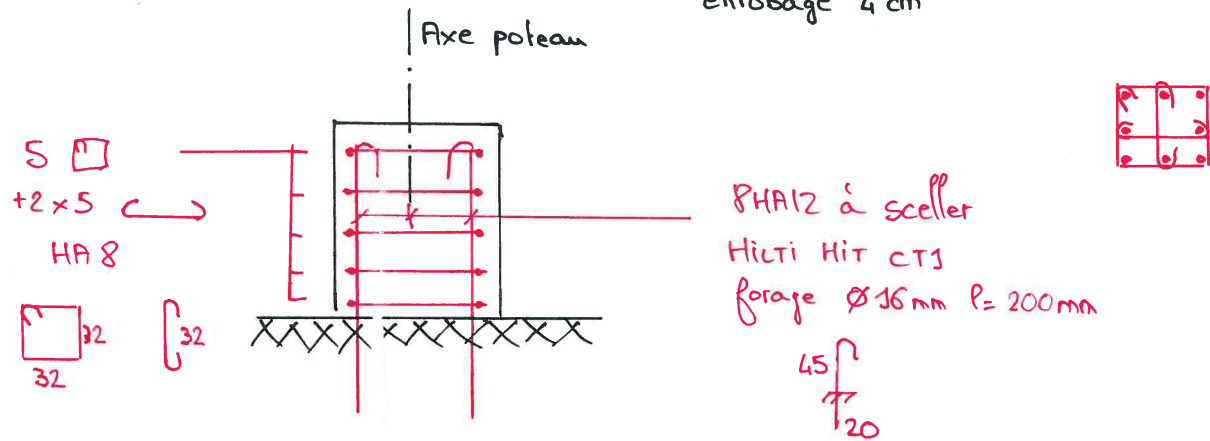 enrobage 4 cm
Axe poteau
5
+2x5
HA 8
32
32
32
8HA12 à sceller
HILTI HIT CT1
forage Ø16mm l=200mm
45
20